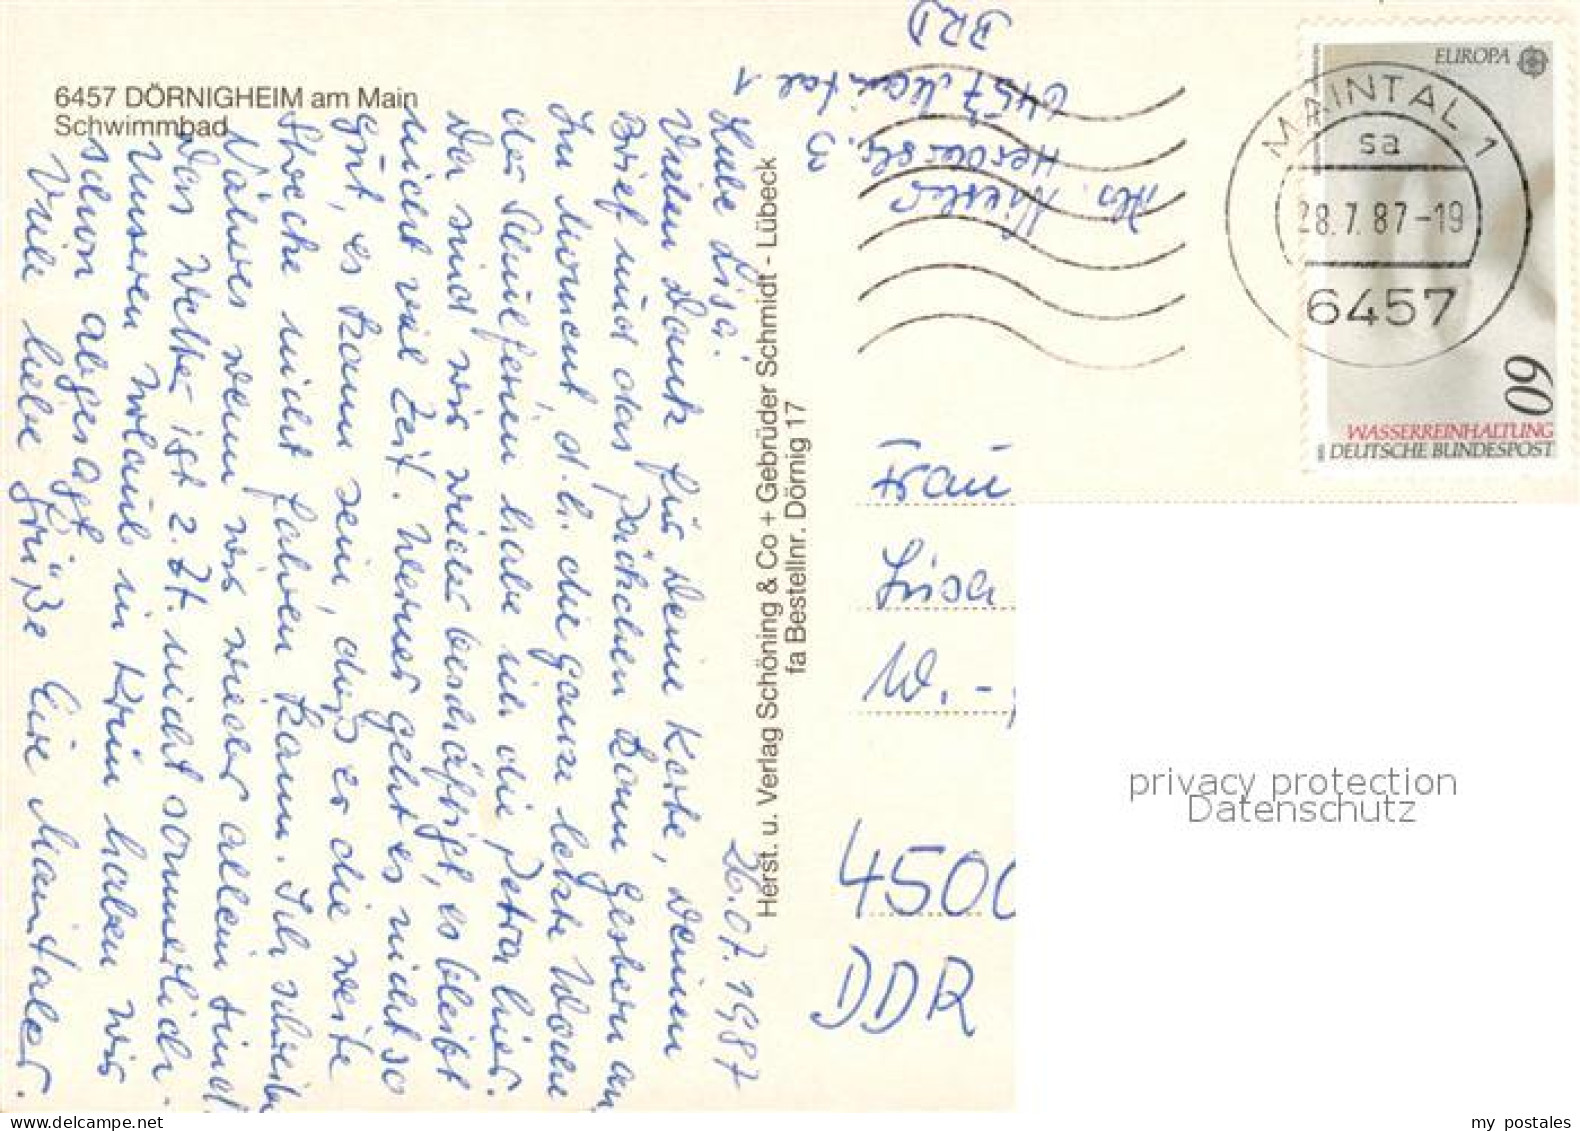 6457 DÖRNIGHEIM am Main
Schwimmbad
26.07.1987
Liebe Lisa!
Vielen Dank für Deine Karte, Deinen
Brief und das Päckchen kam gestern an
Im Moment, d.h. die ganze letzte Woche
der Schulferien habe ich die Petra hier.
Da sind wir wieder beschäftigt, es bleibt
nicht viel Zeit. Werner geht es nicht so
gut, es kann sein, dass er die weite
Strecke nicht fahren kann. Ich schreibe
Näheres wenn wir wieder allein sind.
Das Wetter ist z.Zt. nicht sommerlich.
Unseren Urlaub in Krün haben wir
schon abgesagt.
Viele liebe Grüße Eure Maintaler.
Herst. u. Verlag Schöning & Co + Gebrüder Schmidt - Lübeck
fa Bestellnr. Dörnig 17
Abs. Niesler
6457 Maintal 1
BRD
MAINTAL 1
sa
28.7.87-19
6457
EUROPA
60
WASSERREINHALTUNG
DEUTSCHE BUNDESPOST
Frau
Lisa
W.-
4500
DDR
privacy protection
Datenschutz
my postales